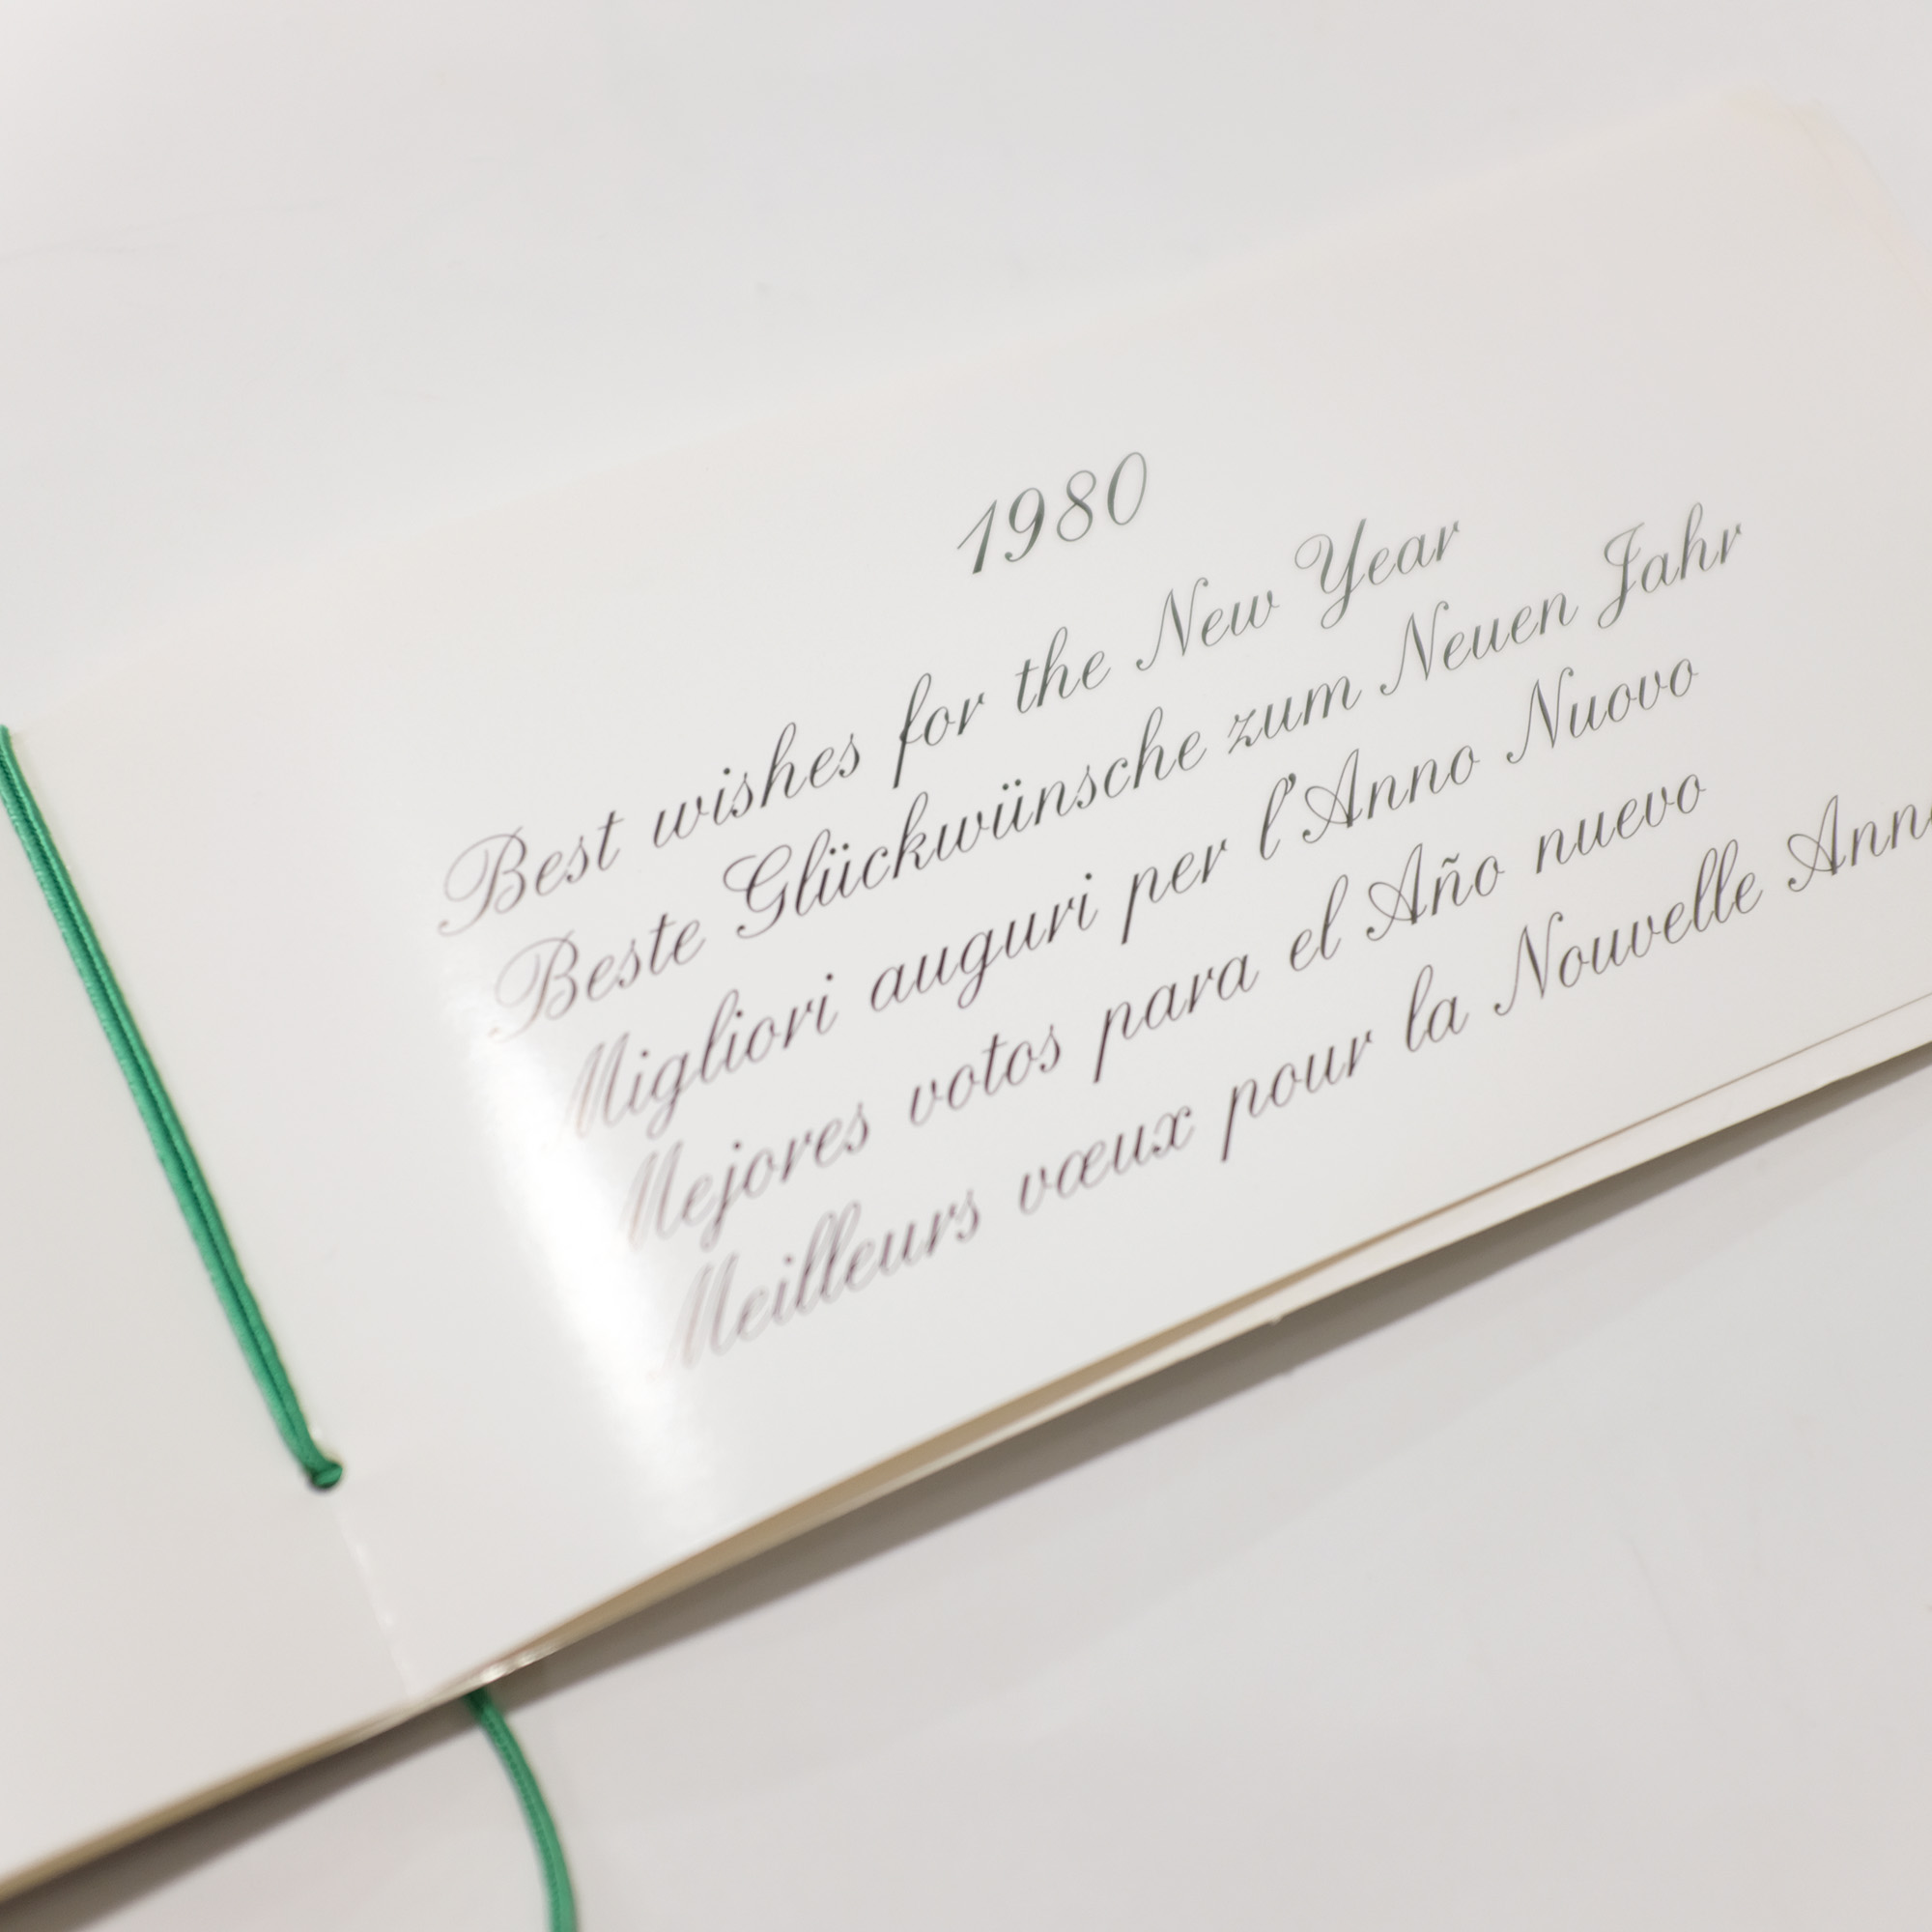 1980
Best wishes for the New Year
Beste Glückwünsche zum Neuen Jahr
Migliori auguri per l'Anno Nuovo
Mejores votos para el Año nuevo
Meilleurs vœux pour la Nouvelle